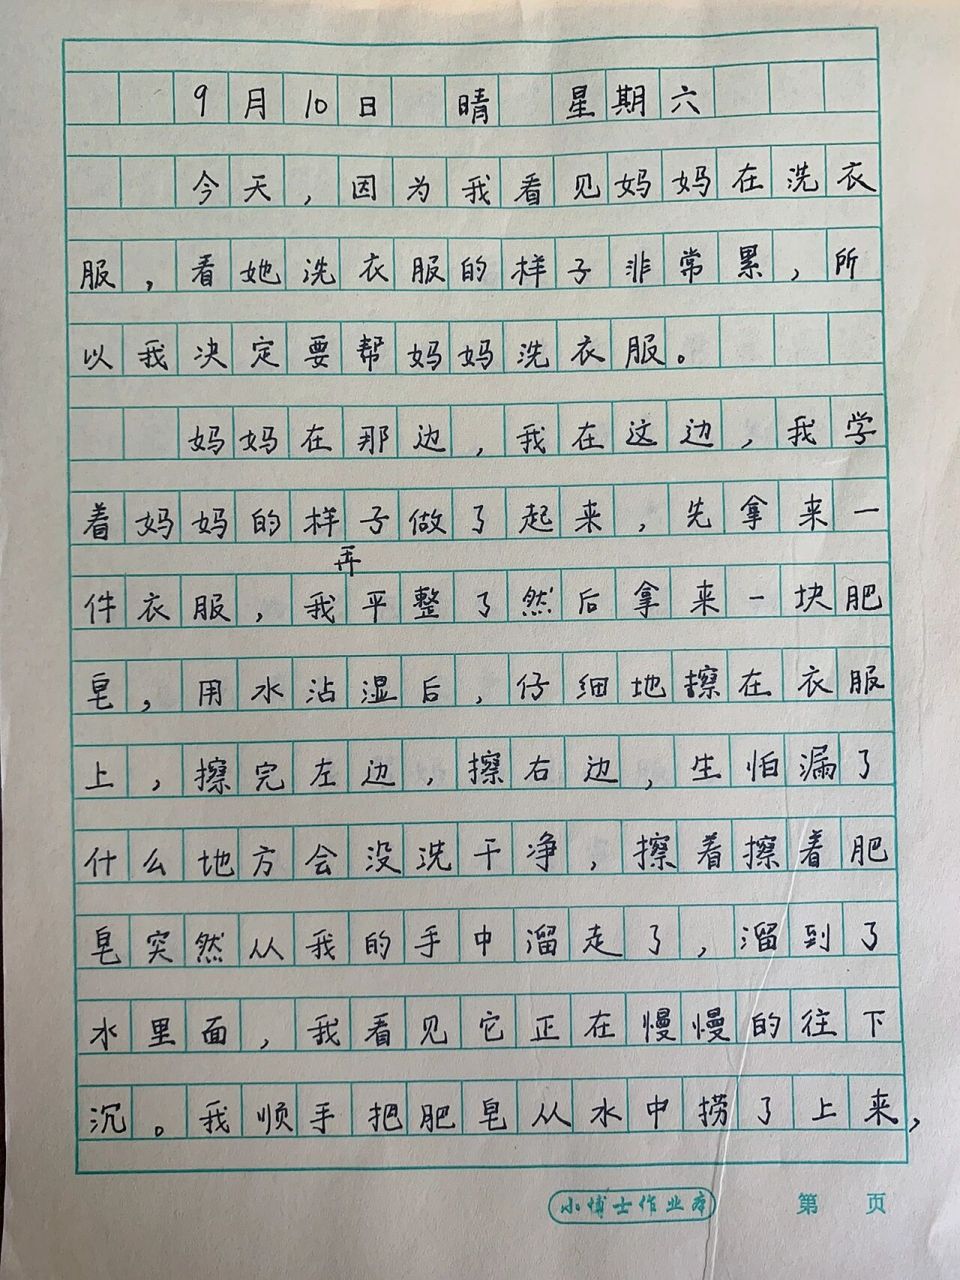 9月10日 晴 星期六
今天，因为我看见妈妈在洗衣
服，看她洗衣服的样子非常累，所
以我决定要帮妈妈洗衣服。
妈妈在那边，我在这边，我学
着妈妈的样子做了起来，先拿来一
再
件衣服，我平整了然后拿来一块肥
皂，用水沾湿后，仔细地擦在衣服
上，擦完左边，擦右边，生怕漏了
什么地方会没洗干净，擦着擦着肥
皂突然从我的手中溜走了，溜到了
水里面，我看见它正在慢慢的往下
沉。我顺手把肥皂从水中捞了上来，
小博士作业本 第 页